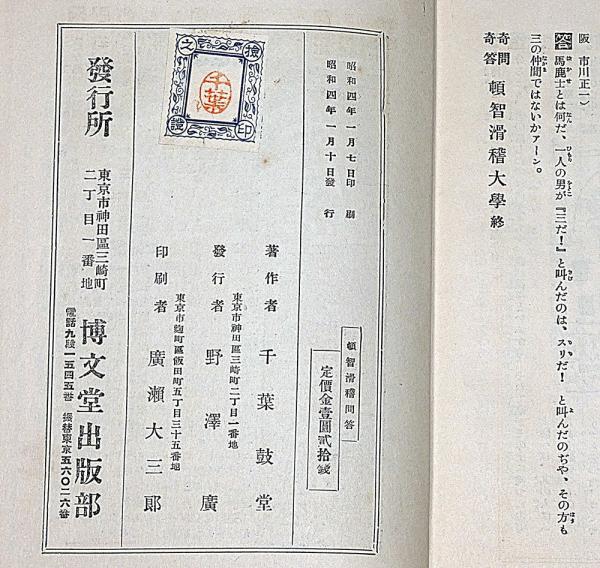 阪 市川正一）
答 馬鹿士とは何だ、一人の男が『三だ！』と叫んだのは、スリだ！ と叫んだのぢや、その方も
三の仲間ではないかァーン。
奇問
奇答 頓智滑稽大學 終
檢
之
印
證
千葉
昭和四年一月七日印刷
昭和四年一月十日發行
頓智滑稽問答
定價金壹圓貳拾錢
著作者 千葉鼓堂
東京市神田區三崎町二丁目一番地
發行者 野澤廣
東京市麹町區飯田町五丁目三十五番地
印刷者 廣瀬大三郎
發行所
東京市神田區三崎町
二丁目一番地
博文堂出版部
電話九段一五四五番 振替東京五六〇二六番